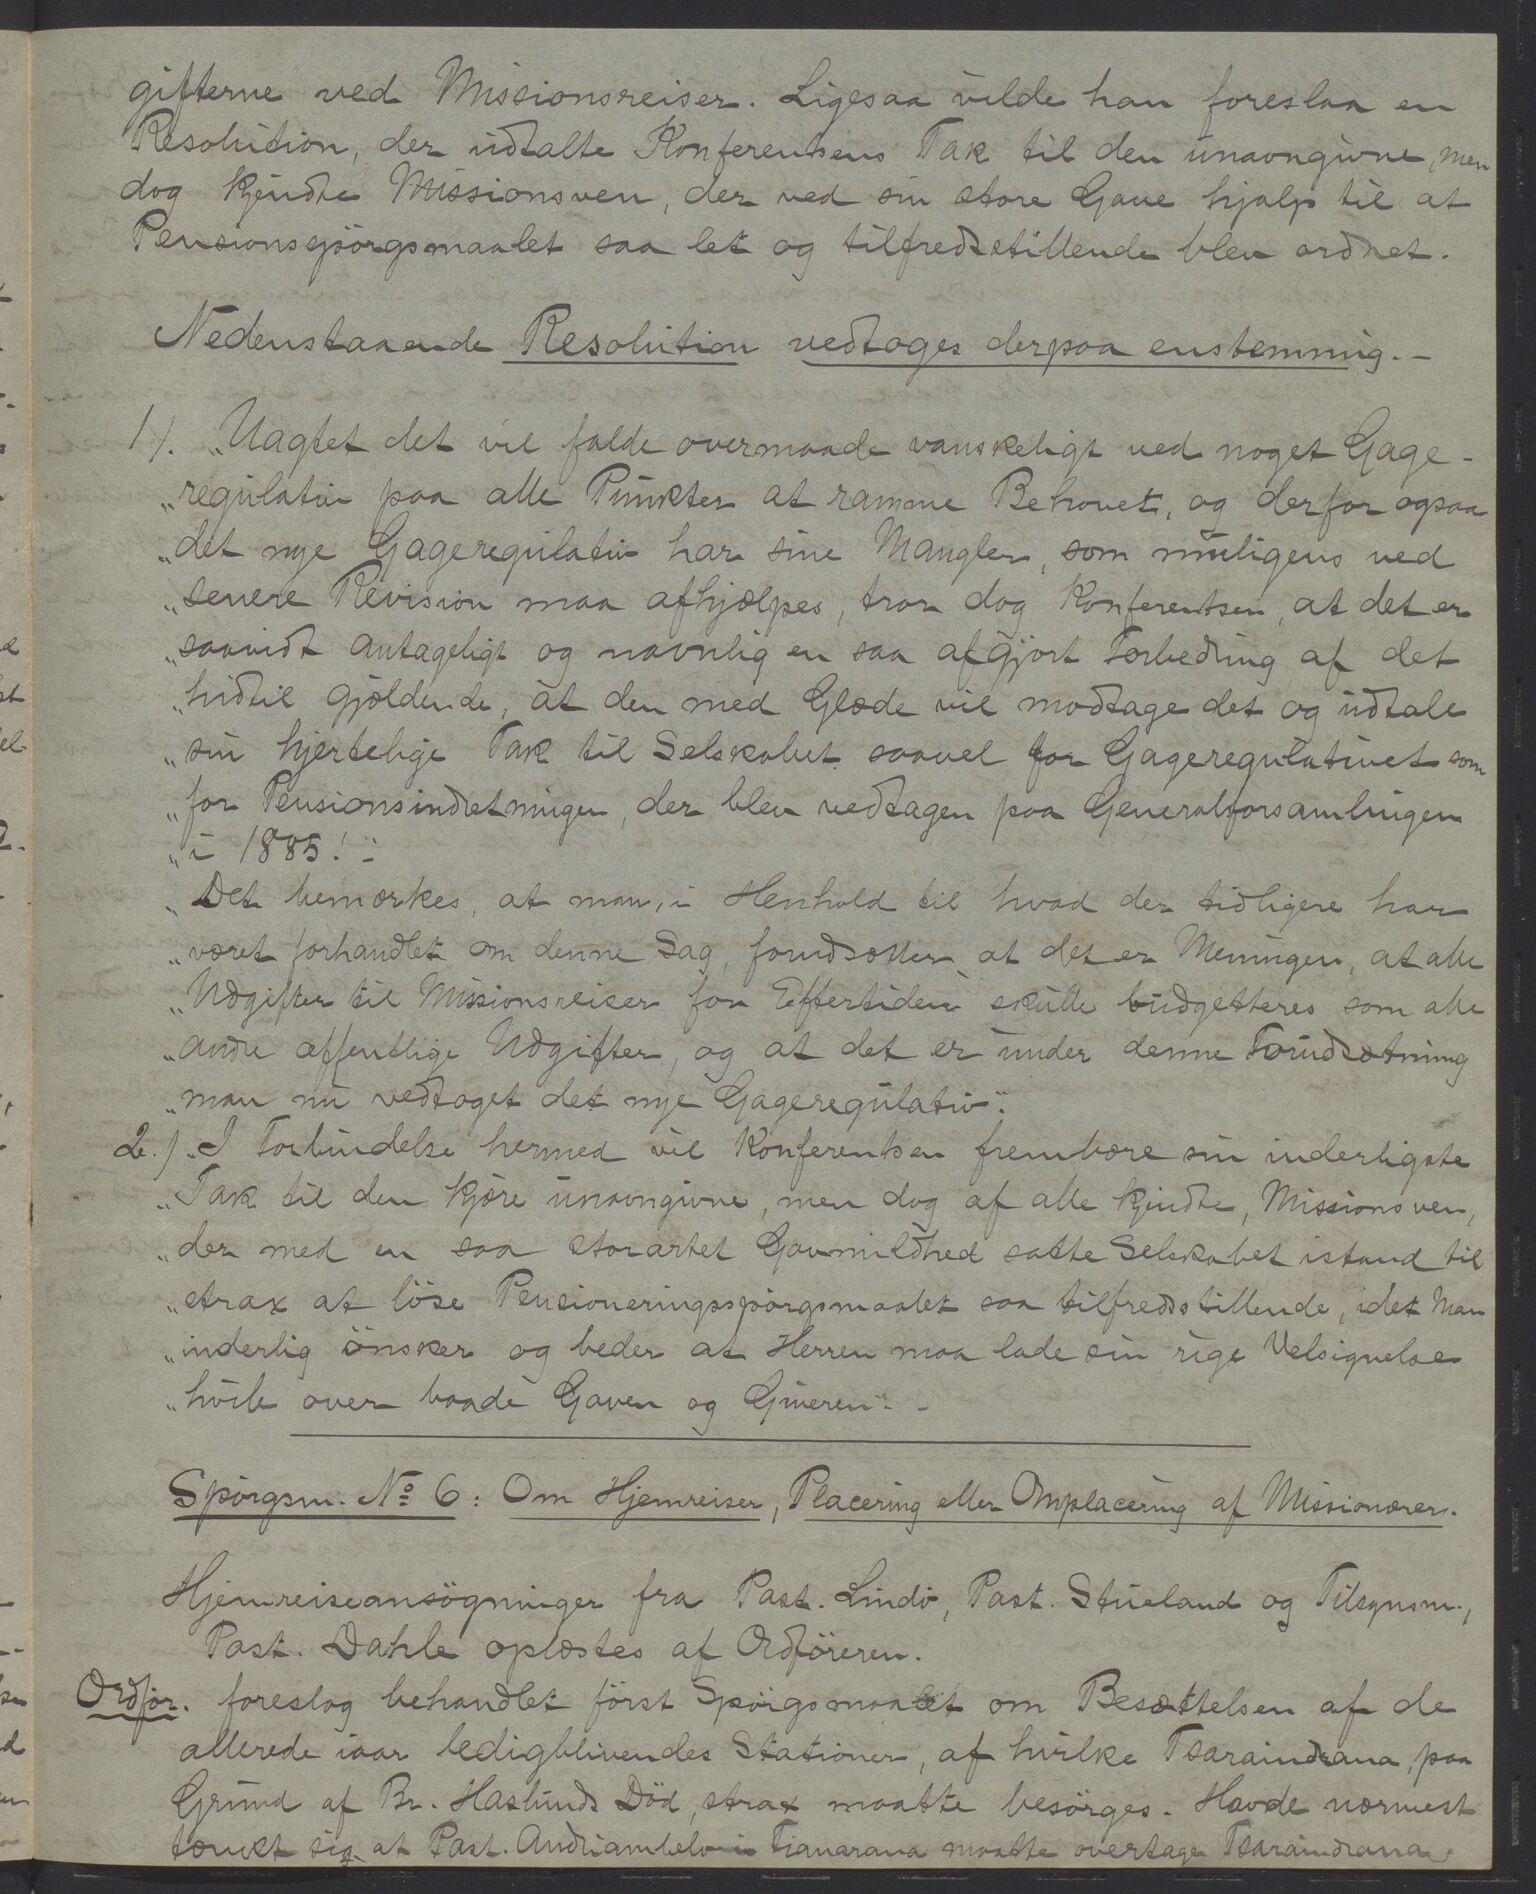 gifterne ved Missionsreiser. Ligesaa vilde han foreslaa en
Resolution, der udtalte Konferentsens Tak til den unavngivne, men
dog kjendte Missionsven, der ved sin store Gave hjalp til at
Pensionsspörgsmaalet saa let og tilfredsstillende blev ordnet.
Nedenstaaende Resolution vedtoges derpaa enstemmig.-
1). „Uagtet det vil falde overmaade vanskeligt ved noget Gage-
„regulativ paa alle Punkter at ramme Behovet, og derfor ogsaa
„det nye Gageregulativ har sine Mangler, som muligens ved
„senere Revision maa afhjælpes, tror dog Konferentsen, at det er
„saavidt antageligt og navnlig en saa afgjort Forbedring af det
„hidtil gjældende, at den med Glæde vil modtage det og udtale
„sin hjertelige Tak til Selskabet saavel for Gageregulativet som
„for Pensionsindretningen, der blev vedtagen paa Generalforsamlingen
„i 1885!“
„Det bemærkes, at man, i Henhold til hvad der tidligere har
„været forhandlet om denne Sag, forudsætter, at det er Meningen, at alle
„Udgifter til Missionsreiser for Eftertiden skulle budgetteres som alle
„andre offentlige Udgifter, og at det er under denne Forudsætning
„man nu vedtoget det nye Gageregulativ“.
2.). „I Forbindelse hermed vil Konferentsen frembære sin inderligste
„Tak til den kjære unavngivne, men dog af alle kjendte, Missionsven,
„der med en saa storartet Gavmildhed satte Selskabet istand til
„strax at löse Pensioneringsspörgsmaalet saa tilfredsstillende, idet Man
„inderlig önsker og beder at Herren maa lade sin rige Velsignelse
„hvile over baade Gaven og Giveren“.-
Spörgsm. No 6: Om Hjemreiser, Placering eller Omplacering af Missionærer.
Hjemreiseansögninger fra Past. Lindö, Past. Stueland og Tilsynsm.,
Past. Dahle oplæstes af Ordföreren.
Ordför. foreslog behandlet först Spörgsmaalet om Besættelsen af de
allerede iaar ledigblivendes Stationer, af hvilke Tsaraindrana, paa
Grund af Br. Haslunds Död, strax maatte besörges. Havde nærmest
tænkt sig, at Past. Andriambelo i Fianarana maatte overtage Tsaraindrana